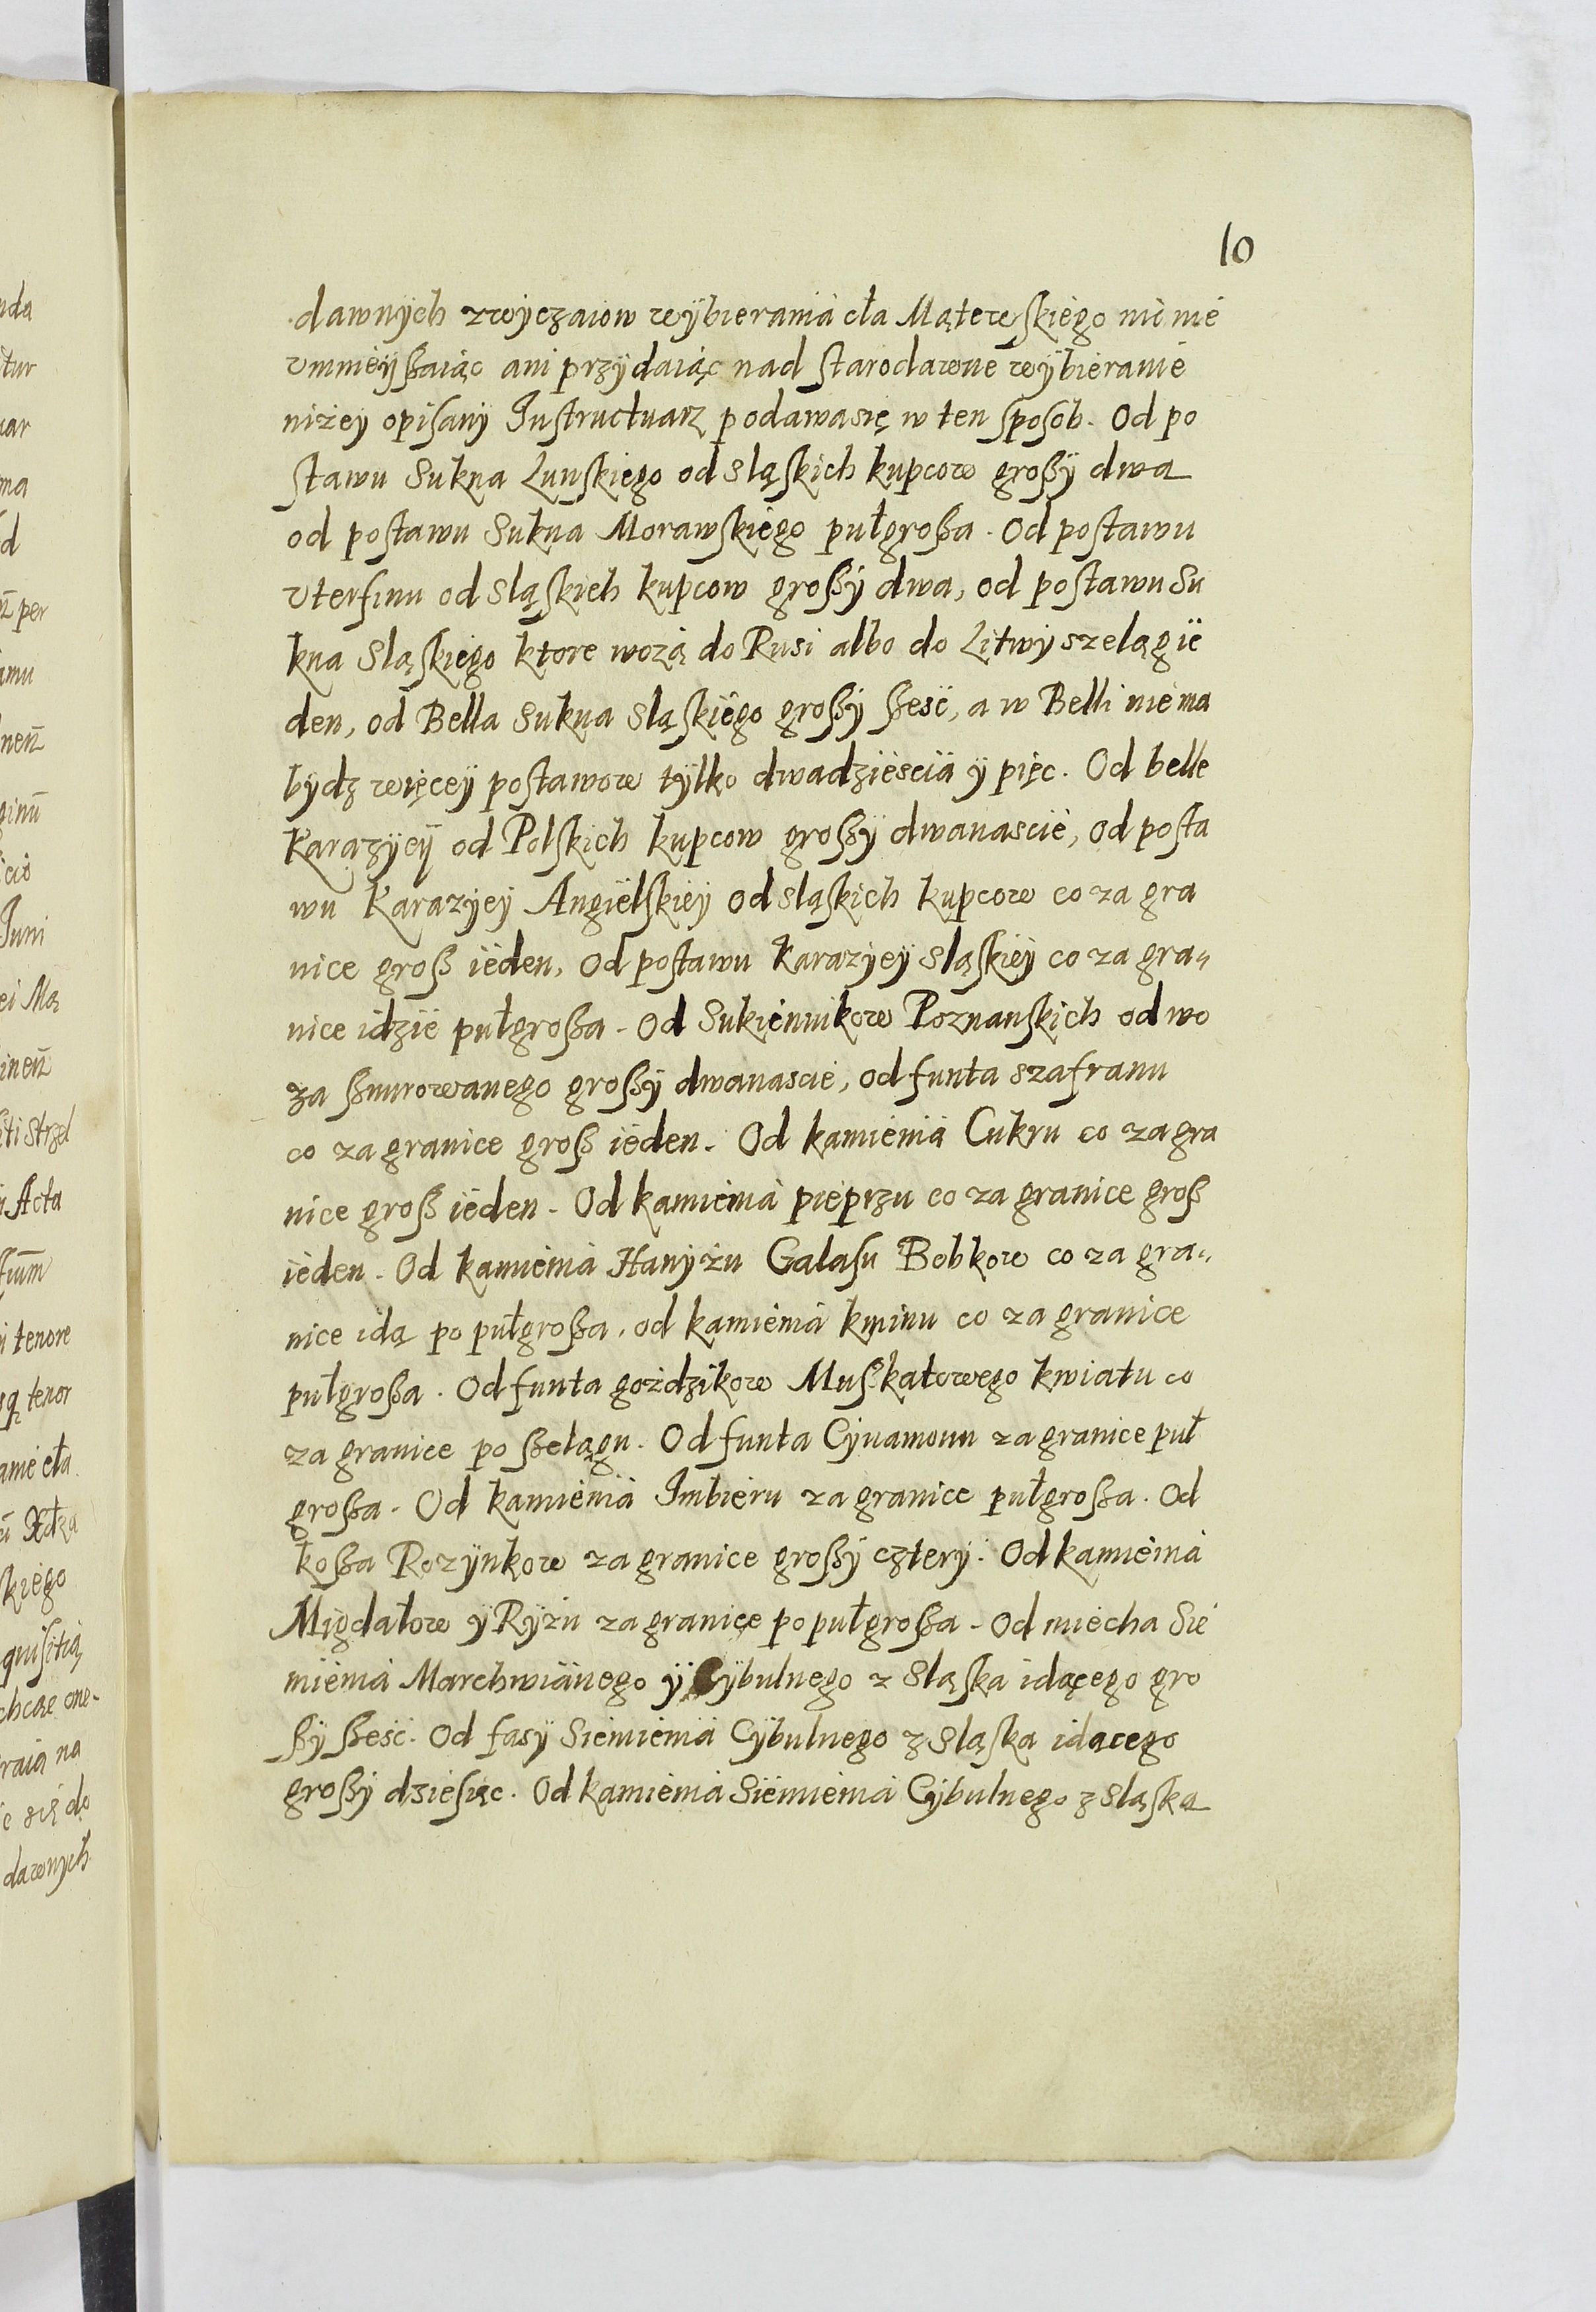 10
dawnych zwyczaiow wybierania cła Mątewskiego nic nie
vmnieyszaiąc ani przydaiąc nad starodawne wybieranie
niżey opisany Instructuarz podawasię w ten sposob. Od po
stawu Sukna Lunskiego od Sląskich kupcow groszy dwa
od postawu Sukna Morawskiego pułgrosza. Od postawu
Vterfinu od Sląskich kupcow groszy dwa, od postawu Su
kna Sląskiego ktore wożą do Rusi albo do Litwy szelągie
den, od Bella Sukna Sląskiego groszy szesc, a w Belli niema
bydz więcey postawow tylko dwadziescia y pięc. Od belle
Karazyey od Polskich kupcow groszy dwanascie, od posta
wu Karazyey Angielskiey od sląskich kupcow co za gra
nice grosz ieden, Od postawu karazyey sląskiey co za gra„
nice idzie pułgrosza. Od Sukiennikow Poznanskich od wo
za sznurowanego groszy dwanascie, od funta szafranu
co za granice grosz ieden. Od kamienia Cukru co za gra
nice grosz ieden. Od kamienia pieprzu co za granice grosz
ieden. Od kamienia Hanyżu Galasu Bobkow co za gra„
nice idą po pułgrosza, od kamienia kminu co za granice
pułgrosza. Od funta goździkow Muszkatowego kwiatu co
za granice po szelągu. Od funta Cynamonu za granice puł
grosza. Od kamienia Imbieru za granice pułgrosza. Od
kosza Rozynkow za granice groszy cztery. Od kamienia
Migdałow y Ryżu za granice po pułgrosza. Od miecha Sie
mienia Marchwianego y Cybulnego z Sląska idącego gro
szy szesć. Od fasy Siemienia Cybulnego z Sląska idacego
groszy dziesięc. Od kamienia Siemienia Cybulnego z Sląska